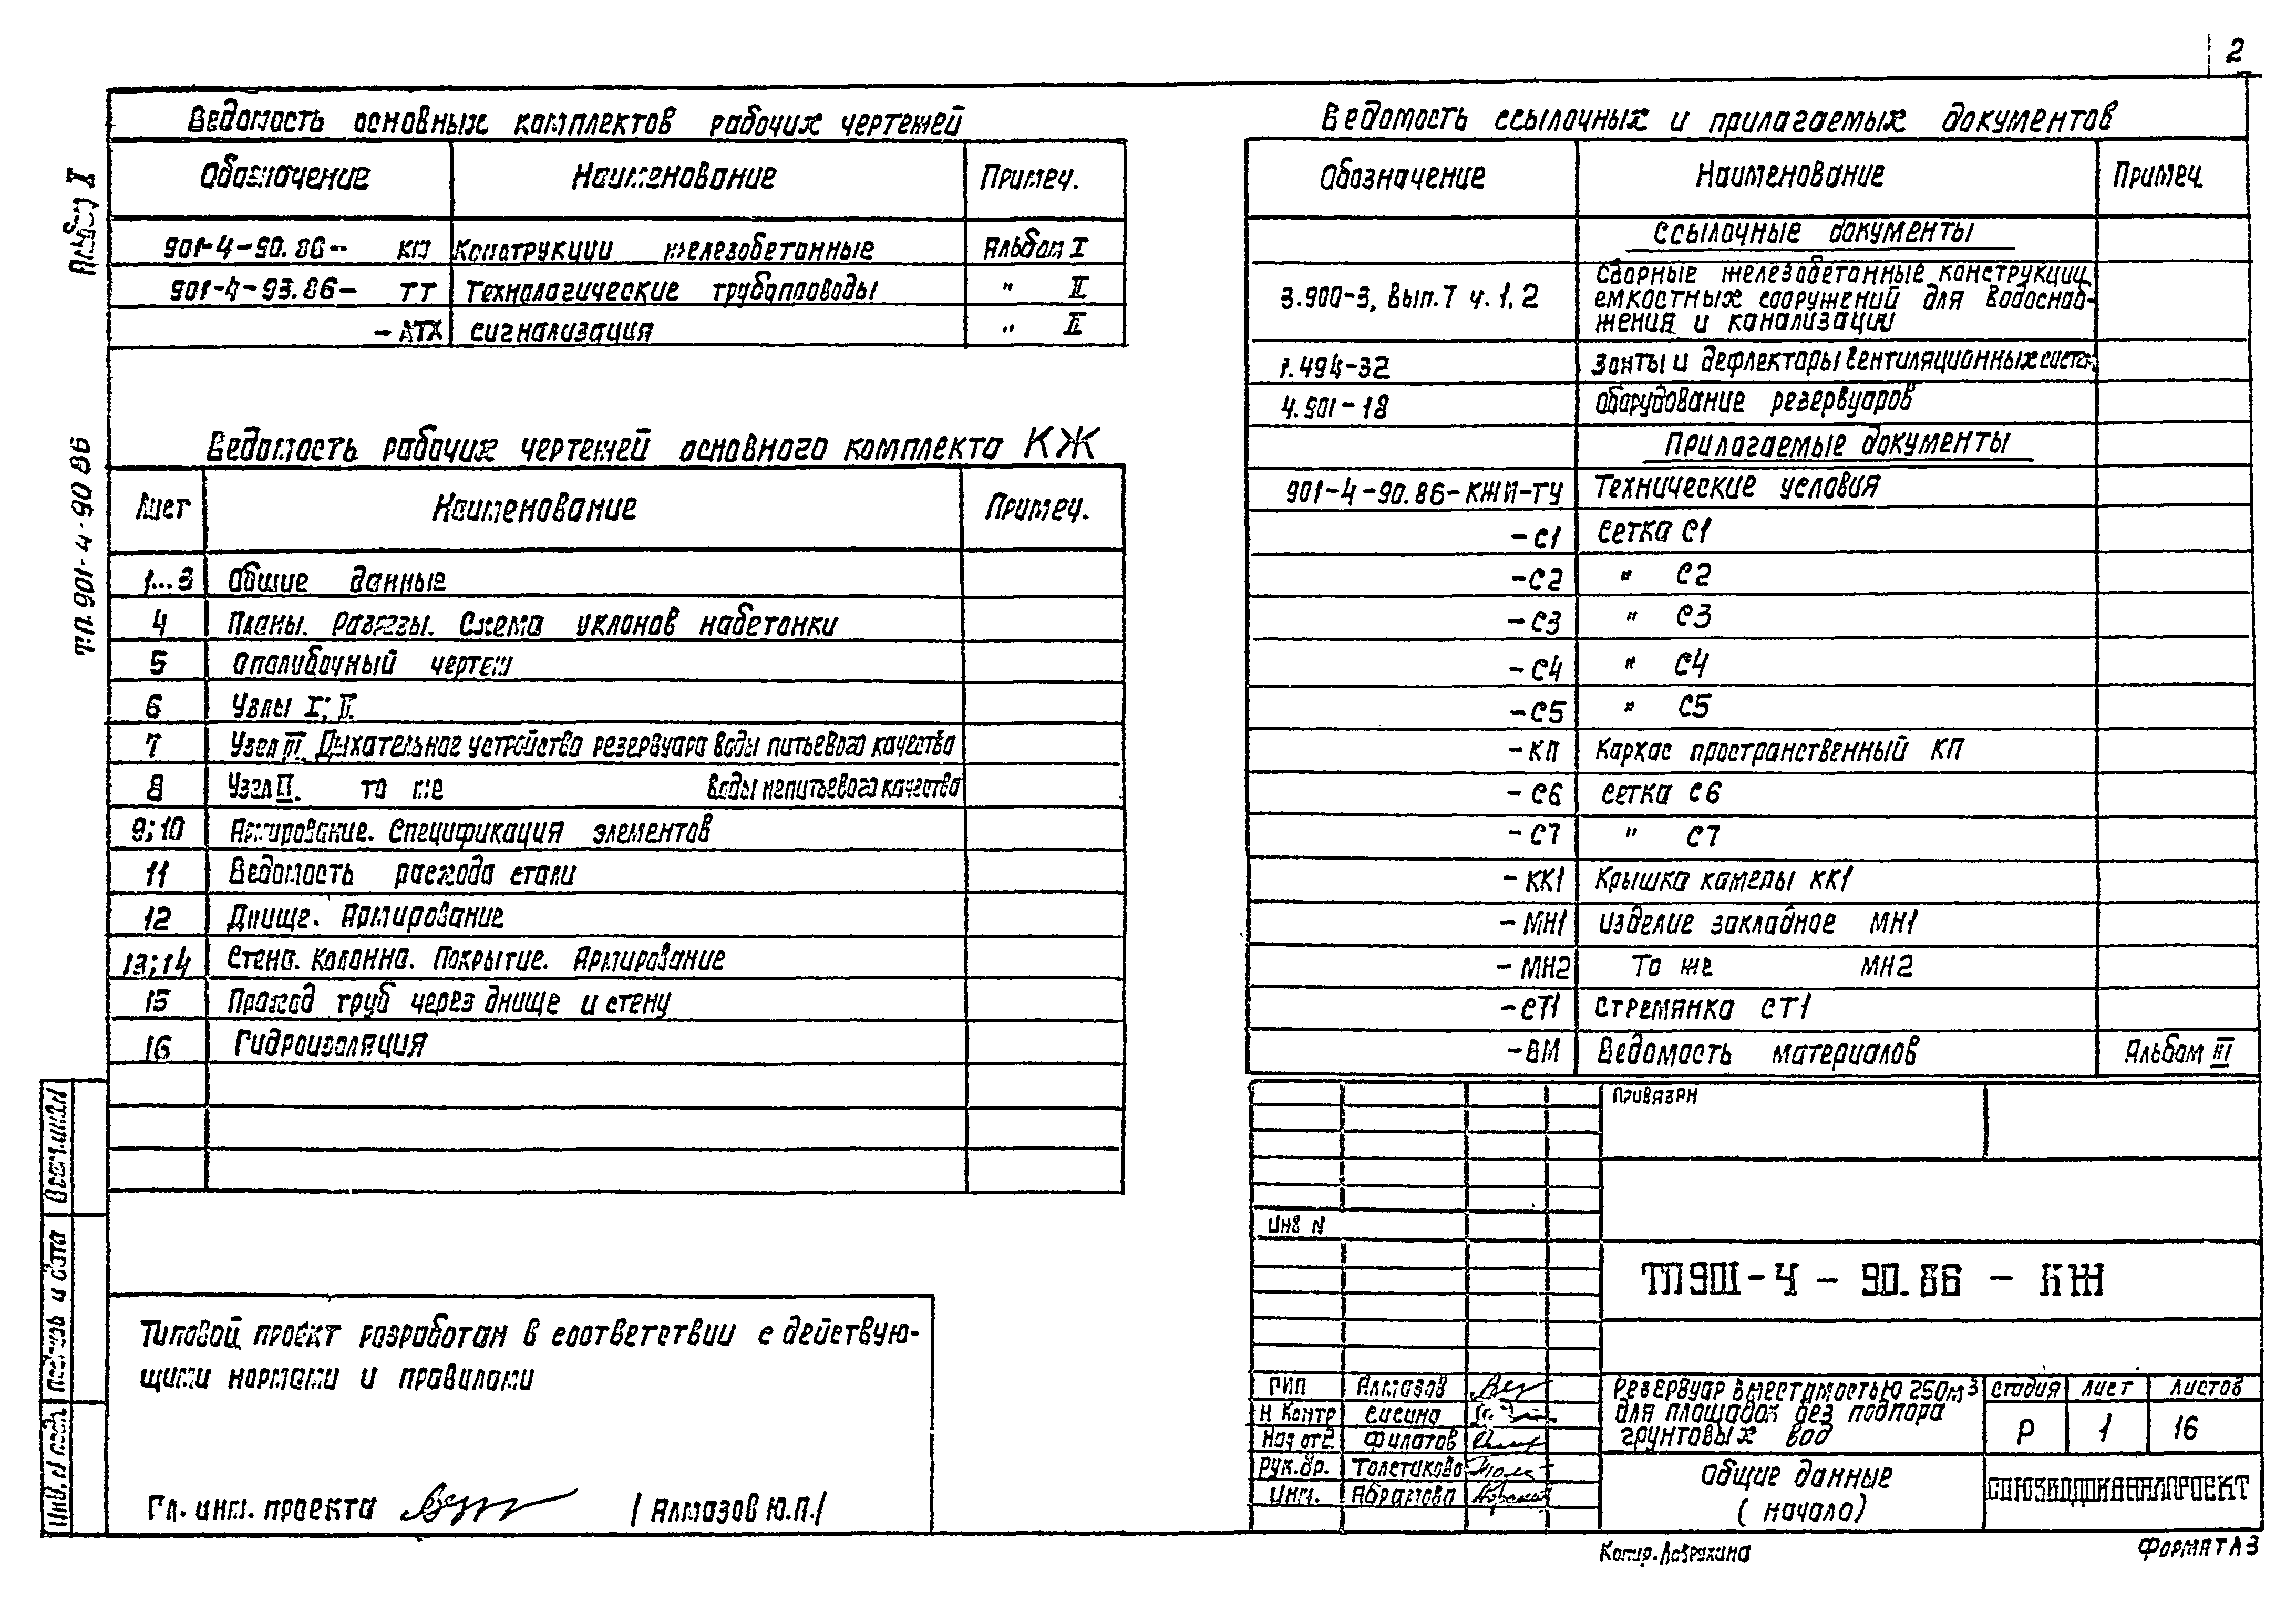 2
Ведомость основных комплектов рабочих чертежей
Обозначение Наименование Примеч.
901-4-90.86- КЖ Конструкции железобетонные Альбом I
901-4-93.86- ТТ Технологические трубопроводы " II
-АТХ Сигнализация " II
Ведомость рабочих чертежей основного комплекта КЖ
Лист Наименование Примеч.
1...3 Общие данные
4 Планы. Разрезы. Схема уклонов набетонки
5 Опалубочный чертеж
6 Узлы I; II.
7 Узел III. Дыхательное устройство резервуара воды питьевого качества
8 Узел II. то же воды непитьевого качества
9;10 Армирование. Спецификация элементов
11 Ведомость расхода стали
12 Днище. Армирование
13;14 Стена. Колонна. Покрытие. Армирование
15 Проход труб через днище и стену
16 Гидроизоляция
Типовой проект разработан в соответствии с действую-
щими нормами и правилами
Гл. инж. проекта /Алмазов Ю.П./
Альбом I
Т.П. 901-4-90 86
Взам.инв.N
Подпись и дата
Инв. N подл.
Ведомость ссылочных и прилагаемых документов
Обозначение Наименование Примеч.
Ссылочные документы
3.900-3, Вып.7 ч.1,2 Сборные железобетонные конструкции
емкостных сооружений для водоснаб-
жения и канализации
1.494-32 Зонты и дефлекторы вентиляционных систем.
4.901-18 Оборудование резервуаров
Прилагаемые документы
901-4-90.86-КЖИ-ТУ Технические условия
-С1 Сетка С1
-С2 " С2
-С3 " С3
-С4 " С4
-С5 " С5
-КП Каркас пространственный КП
-С6 Сетка С6
-С7 " С7
-КК1 Крышка камеры КК1
-МН1 Изделие закладное МН1
-МН2 То же МН2
-СТ1 Стремянка СТ1
-ВМ Ведомость материалов Альбом III
Привязан
Инв N
ТП901-4-90.86-КЖ
ГИП Алмазов
Н Контр Сисина
Нач отд. Филатов
Рук.бр. Толстикова
Инж. Абрамова
Резервуар вместимостью 250м³
для площадок без подпора
грунтовых вод
Стадия Лист Листов
Р 1 16
Общие данные
(начало)
СОЮЗВОДОКАНАЛПРОЕКТ
Копир.
Формат А3